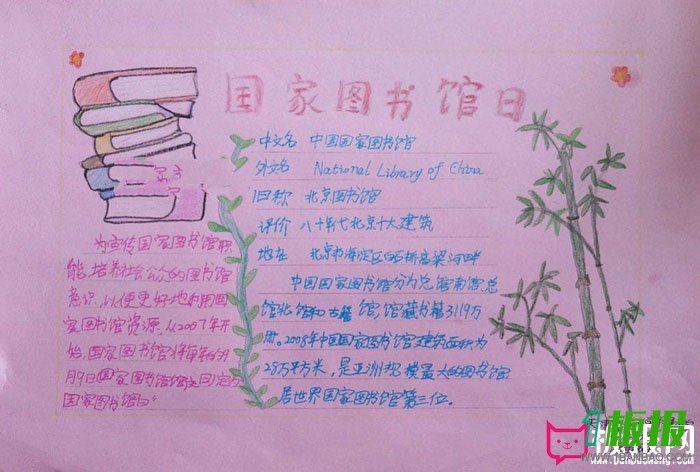 国家图书馆日
中文名 中国国家图书馆
外文名 National Library of China
旧称 北京图书馆
评价 八十年代北京十大建筑
地址 北京市海淀区白石桥高梁河畔
中国国家图书馆分为总馆南馆总
馆北馆和古籍馆,馆藏书籍3119万
册。2008年中国国家图书馆建筑面积为
28万平方米,是亚洲规模最大的图书馆
居世界国家图书馆第三位。
为宣传国家图书馆职
能,培养社会公众的图书馆
意识,以便更好地利用国
家图书馆资源.从2007年开
始,国家图书馆将每年的9
月9日国家图书馆馆庆日定为
国家图书馆日"
板报